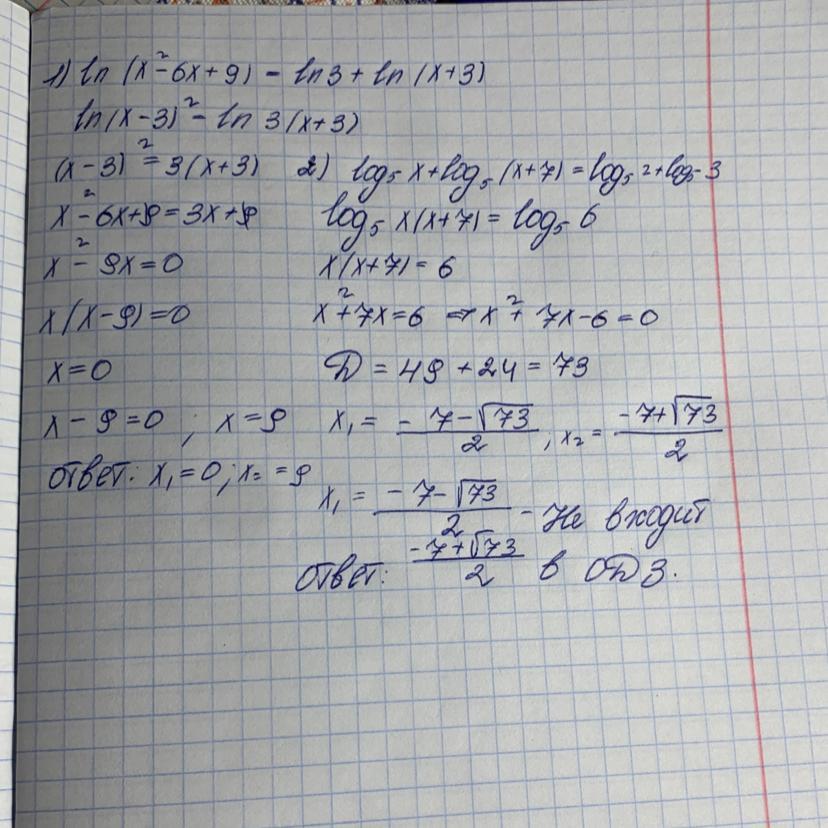 1) ln (x²-6x+9) - ln3 + ln (x+3)
ln(x-3)² - ln 3(x+3)
(x-3)² = 3(x+3)
x²-6x+9=3x+9
x²-9x=0
x(x-9)=0
x=0
x-9=0 ; x=9
ответ: x₁=0; x₂=9
2) log₅ x+log₅ (x+7)=log₅ 2+log₅ 3
log₅ x(x+7)= log₅ 6
x(x+7)=6
x²+7x=6 ⇒ x²+ 7x-6=0
D = 49 +24 = 73
x₁ = (-7-√73)/2 ; x₂ = (-7+√73)/2
x₁ = (-7-√73)/2 - Не входит
в ОДЗ.
ответ: (-7+√73)/2